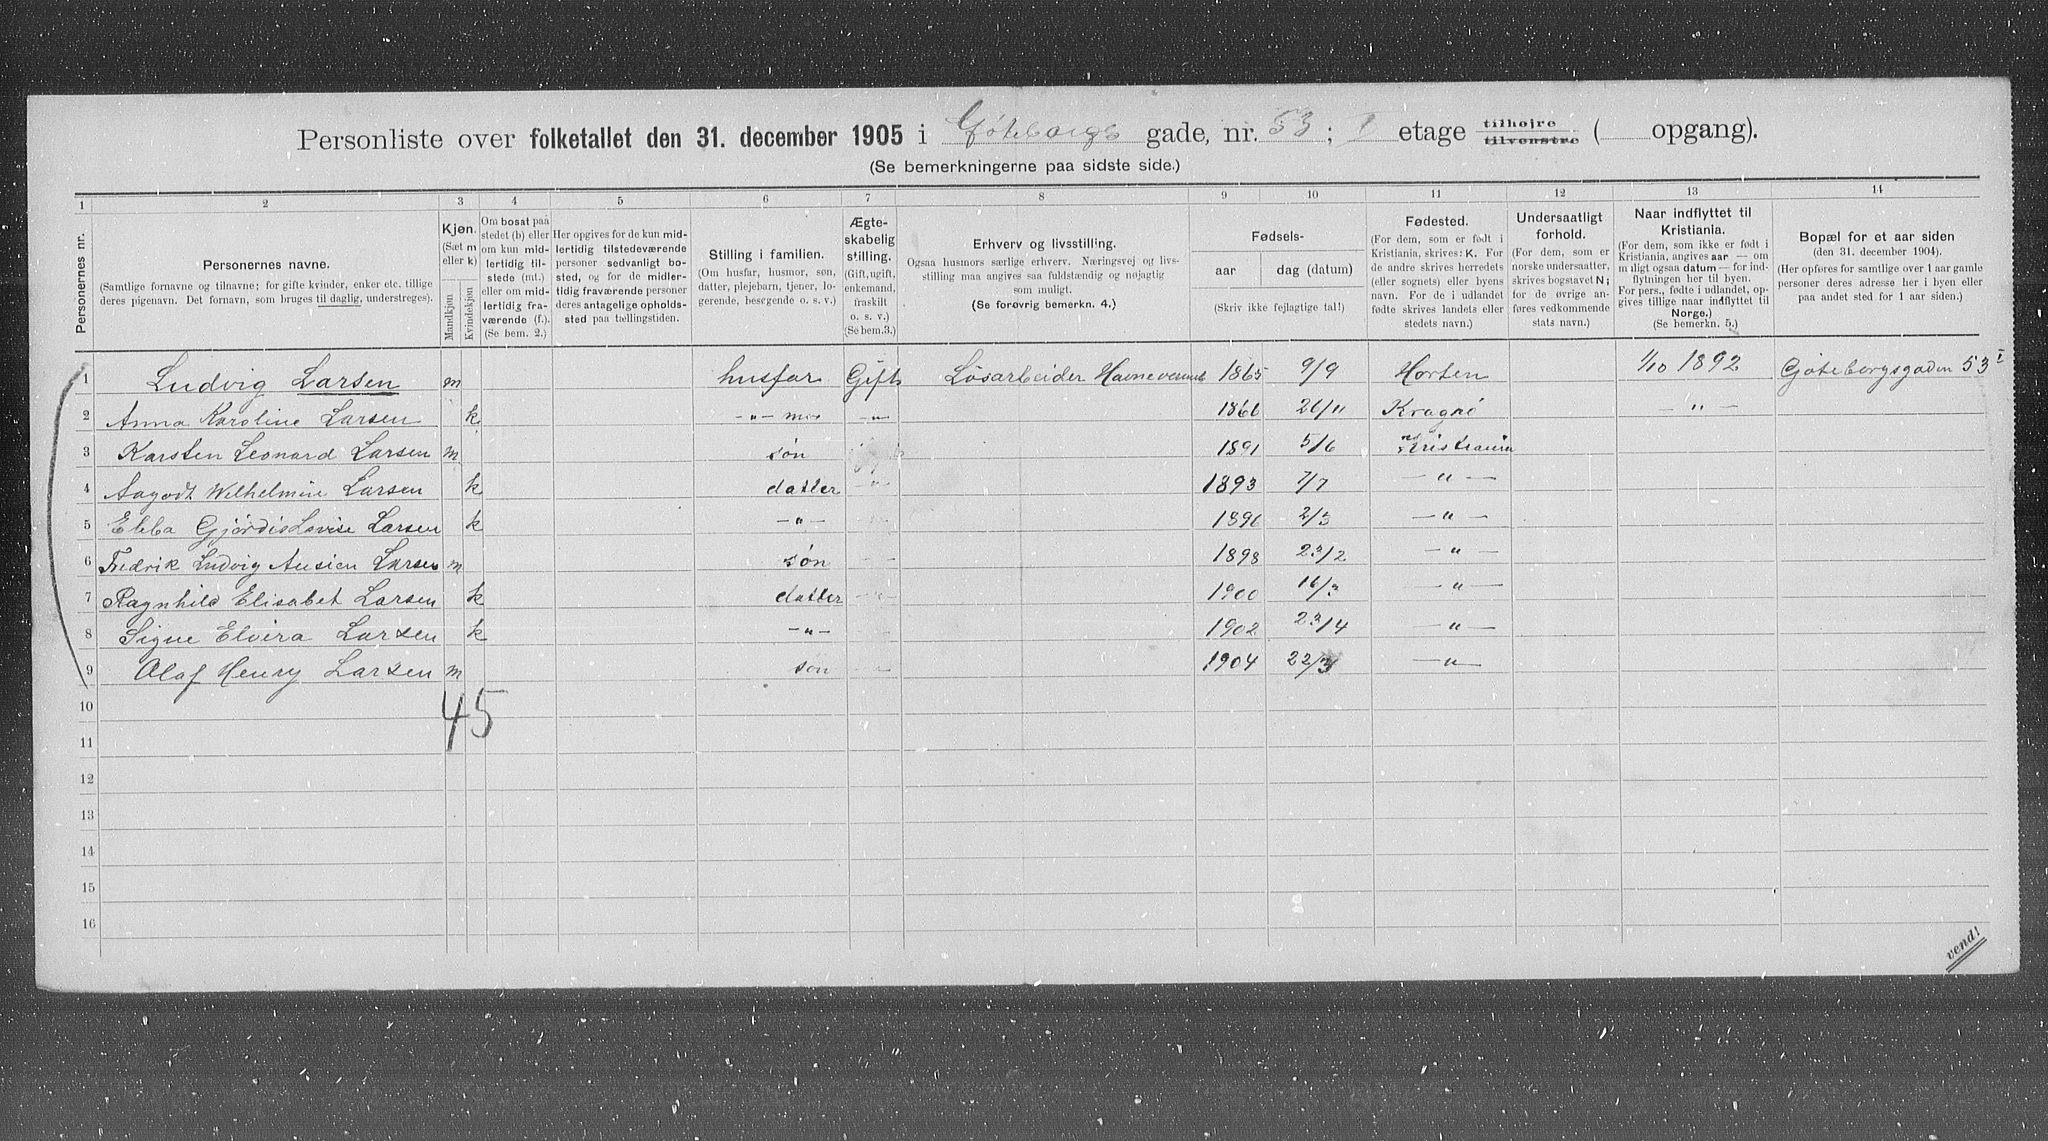 Personliste over folketallet den 31. december 1905 i Göteborgs gade, nr. 53 ; I etage tilhøjre tilvenstre ( opgang).
(Se bemerkningerne paa sidste side.)
1 2 3 4 5 6 7 8 9 10 11 12 13 14
Personernes nr.
Personernes navne.
(Samtlige fornavne og tilnavne; for gifte kvinder, enker etc. tillige deres pigenavn. Det fornavn, som bruges til daglig, understreges).
Kjøn.
(Sæt m eller k)
Mandkjøn
Kvindekjøn
Om bosat paa stedet (b) eller om kun midlertidig tilstede (mt.) eller om midlertidig fraværende (f.). (Se bem. 2.)
Her opgives for de kun midlertidig tilstedeværende personer sedvanlig bosted, og for de midlertidig fraværende personer deres antagelige opholdssted paa tællingstiden.
Stilling i familien.
(Om husfar, husmor, søn, datter, plejebarn, tjener, logerende, besøgende o. s. v.)
Ægteskabelig stilling.
(Gift, ugift, enkemand, fraskilt o. s. v.) (Se bem. 3.)
Erhverv og livsstilling.
Ogsaa husmors særlige erhverv. Næringsvej og livsstilling maa angives saa fuldstændig og nøjagtig som muligt.
(Se forøvrig bemerkn. 4.)
Fødsels-
aar
dag (datum)
(Skriv ikke fejlagtige tal!)
Fødested.
(For dem, som er født i Kristiania, skrives: K. For de andre skrives herredets (eller sognets) eller byens navn. For de i udlandet fødte skrives landets eller stedets navn.)
Undersaatligt forhold.
(For dem, som er norske undersaatter, skrives bogstavet N; for de øvrige anføres vedkommende stats navn.)
Naar indflyttet til Kristiania.
(For dem, som ikke er født i Kristiania, angives aar — om muligt ogsaa datum — for indflytningen her til byen. For pers., fødte i udlandet, opgives tillige naar indflyttet til Norge.)
(Se bemerkn. 5.)
Bopæl for et aar siden
(den 31. december 1904).
(Her opføres for samtlige over 1 aar gamle personer deres adresse her i byen eller paa andet sted for 1 aar siden.)
1 Ludvig Larsen m husfar Gift Lösarbeider Havnevesenet 1865 9/9 Horten 1/10 1892 Göteborgsgaden 53 I
2 Anna Karoline Larsen k -„- mor -„- 26/11 Kragrö -„-
3 Karsten Leonard Larsen m søn 1891 5/6 Kristiania
4 Aagodt Wilhelmine Larsen k datter -„- 1893 7/7 -„-
5 Ebba Gjördis Lovise Larsen k -„- 2/3 -„-
6 Fredrik Ludvig Larsen m søn 1898 23/2 -„-
7 Ragnhild Elisabet Larsen k datter 1900 16/3 -„-
8 Signe Elvira Larsen k -„- 1902 23/4 -„-
9 Olaf Henry Larsen m søn 1904 22/3 -„-
45
10
11
12
13
14
15
16
vend!